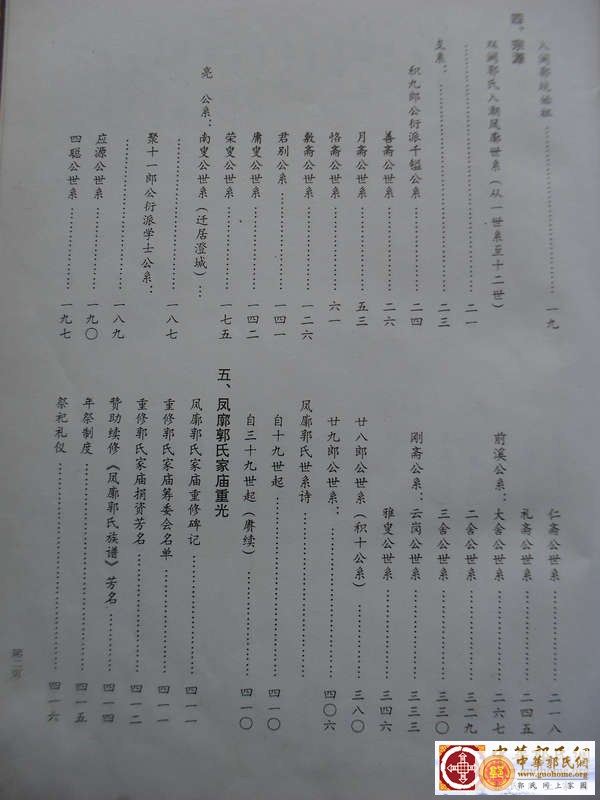 入闽郭统始祖……一九
四、宗源
双阙郭氏入潮凤廓世系(从一世系至十二世)
……二一
支系:……二三
积九郎公衍派千镒公系……二四
善斋公世系……二六
月斋公世系……五三
恪斋公世系……六一
敷斋公世系……一二六
君别公系……一四一
庸叟公世系……一四二
荣叟公世系……一七五
亮公系:南叟公世系(迁居澄城)…
……一八七
聚十一郎公衍派学士公系:
……一八九
应源公世系……一九〇
四聪公世系……一九七
仁斋公世系……二一八
礼斋公世系……二四五
前溪公系:大舍公世系……二六七
二舍公世系……三二九
三舍公世系……三三〇
刚斋公系:云岗公世系……三三三
雅叟公世系……三四六
廿八郎公世系(积十公系)……三八〇
廿九郎公世系:……四〇六
凤廓郭氏世系诗
自十九世起……四一〇
自三十九世起(赓续)……四一〇
五、凤廓郭氏家庙重光
凤廓郭氏家庙重修碑记……四一一
重修郭氏家庙筹委会名单……四一一
重修郭氏家庙捐资芳名……四一二
赞助续修《凤廓郭氏族谱》芳名……四一四
年祭制度……四一五
祭祀礼仪……四一六
第二页
中华郭氏网
中華郭氏網
www.guohome.org
郭氏网上家园